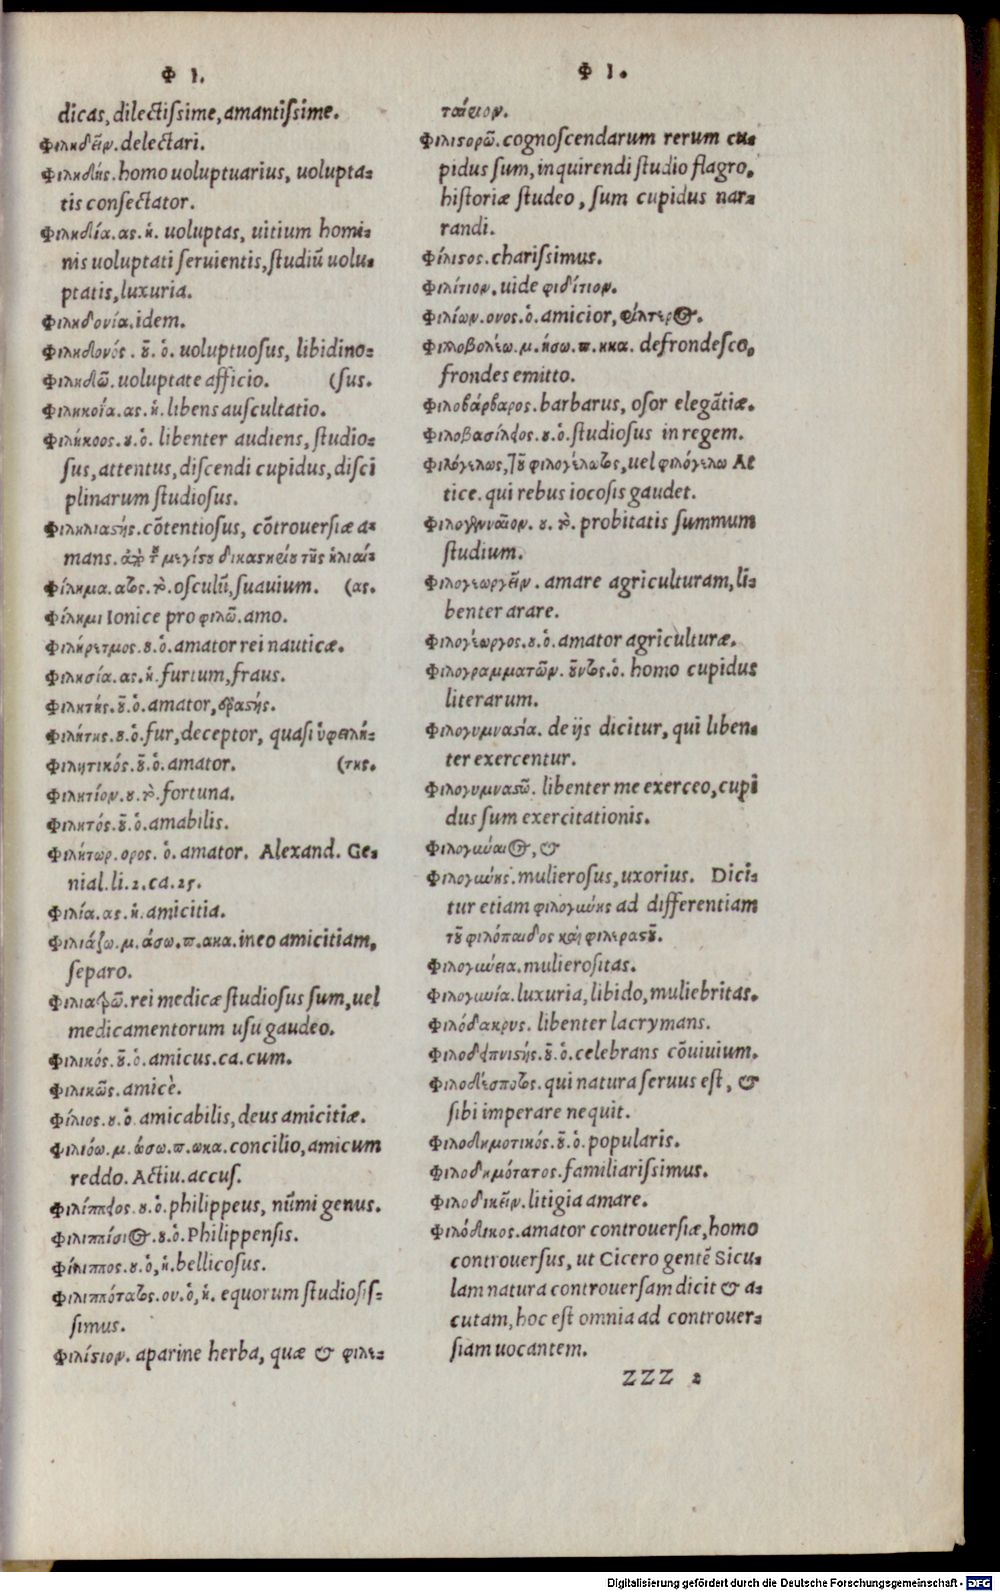 Φ Ι.
dicas, dilectiſsime, amantiſsime.
Φιληδεῖν. delectari.
Φιληδής. homo uoluptuarius, uolupta-
tis conſectator.
Φιληδία. ας. ἡ. uoluptas, uitium homi-
nis uoluptati ſeruientis, ſtudiũ uolu-
ptatis, luxuria.
Φιληδονία. idem.
Φιληδονός. οῦ. ὁ. uoluptuoſus, libidino-
Φιληδῶ. uoluptate afficio. (ſus.
Φιληκοΐα. ας. ἡ. libens auſcultatio.
Φιλήκοος. ου. ὁ. libenter audiens, ſtudio-
ſus, attentus, diſcendi cupidus, diſci
plinarum ſtudioſus.
Φιληλιαστής. cõtentioſus, cõtrouerſiæ a-
mans. ἀπὸ τοῦ μεγίστου δικαστηρίου τῆς ἡλιαί-
Φίλημα. ατος. τὸ. oſculũ, ſuauium. (ας.
Φίλημι Ionice pro φιλῶ. amo.
Φιλήρετμος. ου. ὁ. amator rei nauticæ.
Φιλησία. ας. ἡ. furtum, fraus.
Φιλητής. οῦ. ὁ. amator, ἐραστής.
Φιλήτης. ου. ὁ. fur, deceptor, quaſi ὑφειλή-
Φιλητικός. οῦ. ὁ. amator. (της.
Φιλητίον. ου. τὸ. fortuna.
Φιλητός. οῦ. ὁ. amabilis.
Φιλήτωρ. ορος. ὁ. amator. Alexand. Ge-
nial. li. 2. ca. 25.
Φιλία. ας. ἡ. amicitia.
Φιλιάζω. μ. άσω. π. ακα. ineo amicitiam,
ſeparo.
Φιλιατρῶ. rei medicæ ſtudioſus ſum, uel
medicamentorum uſu gaudeo.
Φιλικός. οῦ. ὁ. amicus. ca. cum.
Φιλικῶς. amicè.
Φίλιος. ου. ὁ. amicabilis, deus amicitiæ.
Φιλιόω. μ. ώσω. π. ωκα. concilio, amicum
reddo. Actiu. accuſ.
Φιλίππειος. ου. ὁ. philippeus, nũmi genus.
Φιλιππίσιος. ου. ὁ. Philippenſis.
Φίλιππος. ου. ὁ, ἡ. bellicoſus.
Φιλιππότατος. ου. ὁ, ἡ. equorum ſtudioſiſ-
ſimus.
Φιλίστιον. aparine herba, quæ & φιλε-
Φ Ι.
ταίριον.
Φιλιστορῶ. cognoſcendarum rerum cu-
pidus ſum, inquirendi ſtudio flagro,
hiſtoriæ ſtudeo, ſum cupidus nar-
randi.
Φίλιστος. chariſsimus.
Φιλίτιον. uide φιδίτιον.
Φιλίων. ονος. ὁ. amicior, φίλτερος.
Φιλλοβολέω. μ. ήσω. π. ηκα. defrondeſco,
frondes emitto.
Φιλοβάρβαρος. barbarus, oſor elegãtiæ.
Φιλοβασίλειος. ου. ὁ. ſtudioſus in regem.
Φιλόγελως, τοῦ φιλογέλωτος, uel φιλόγελω At
tice. qui rebus iocoſis gaudet.
Φιλογενναῖον. ου. τὸ. probitatis ſummum
ſtudium.
Φιλογεωργεῖν. amare agriculturam, li-
benter arare.
Φιλογέωργος. ου. ὁ. amator agriculturæ.
Φιλογραμματῶν. οῦντος. ὁ. homo cupidus
literarum.
Φιλογυμναστία. de ijs dicitur, qui liben-
ter exercentur.
Φιλογυμναστῶ. libenter me exerceo, cupi
dus ſum exercitationis.
Φιλογύναιος, &
Φιλογύνης. mulieroſus, uxorius. Dici-
tur etiam φιλογύνης ad differentiam
τοῦ φιλόπαιδος καὶ φιλεραστοῦ.
Φιλογύνεια. mulieroſitas.
Φιλογυνία. luxuria, libido, muliebritas.
Φιλόδακρυς. libenter lacrymans.
Φιλοδειπνιστής. οῦ. ὁ. celebrans cõuiuium.
Φιλοδέσποτος. qui natura ſeruus eſt, &
ſibi imperare nequit.
Φιλοδημοτικός. οῦ. ὁ. popularis.
Φιλοδημότατος. familiariſsimus.
Φιλοδικεῖν. litigia amare.
Φιλόδικος. amator controuerſiæ, homo
controuerſus, ut Cicero gentẽ Sicu-
lam natura controuerſam dicit & a-
cutam, hoc eſt omnia ad controuer-
ſiam uocantem.
ZZZ 2
Digitalisierung gefördert durch die Deutsche Forschungsgemeinschaft - DFG